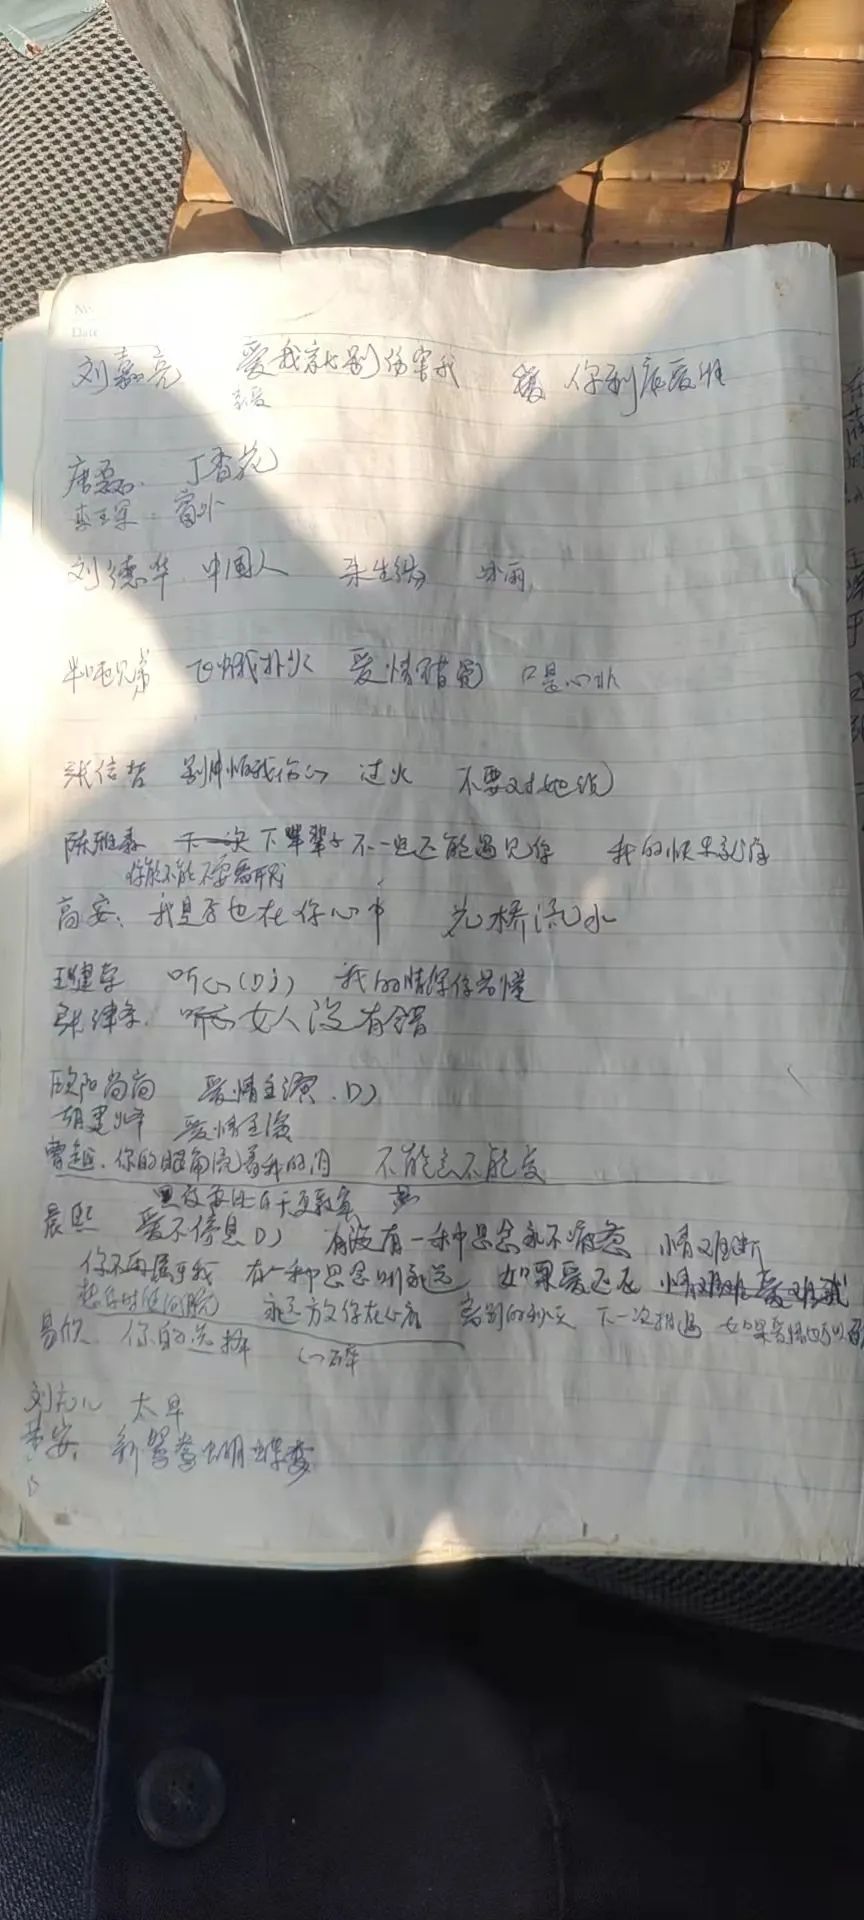 No.
Date
刘嘉亮 爱我就别伤害我 你到底爱谁
唐磊. 丁香花
刘德华 中国人 来生缘 冰雨
半吨兄弟 飞蛾扑火 爱情错觉 口是心非
张信哲 别怕我伤心 过火 不要对她说
陈雅森 下一次 下辈子不一定还能遇见你 我的快乐就是
你能不能不要离开我
高安. 我是否也在你心中 小桥流水
王建荣 听心(DJ) 我的情深你若懂
张津涤. 听心 女人没有错
欧阳尚尚 爱情主演. DJ
爱情主演
曹越. 你的眼角流着我的泪 不能去不能爱
黑夜要比白天更寂寞
晨熙 爱不停息DJ 有没有一种思念永不疲惫 情难断
你不再属于我 有一种思念叫永远 如果爱还在 情难断爱难
永远放你在心底 离别的秋天 下一次相遇
易欣 你的选择 心碎
太早
黄安. 新鸳鸯蝴蝶梦